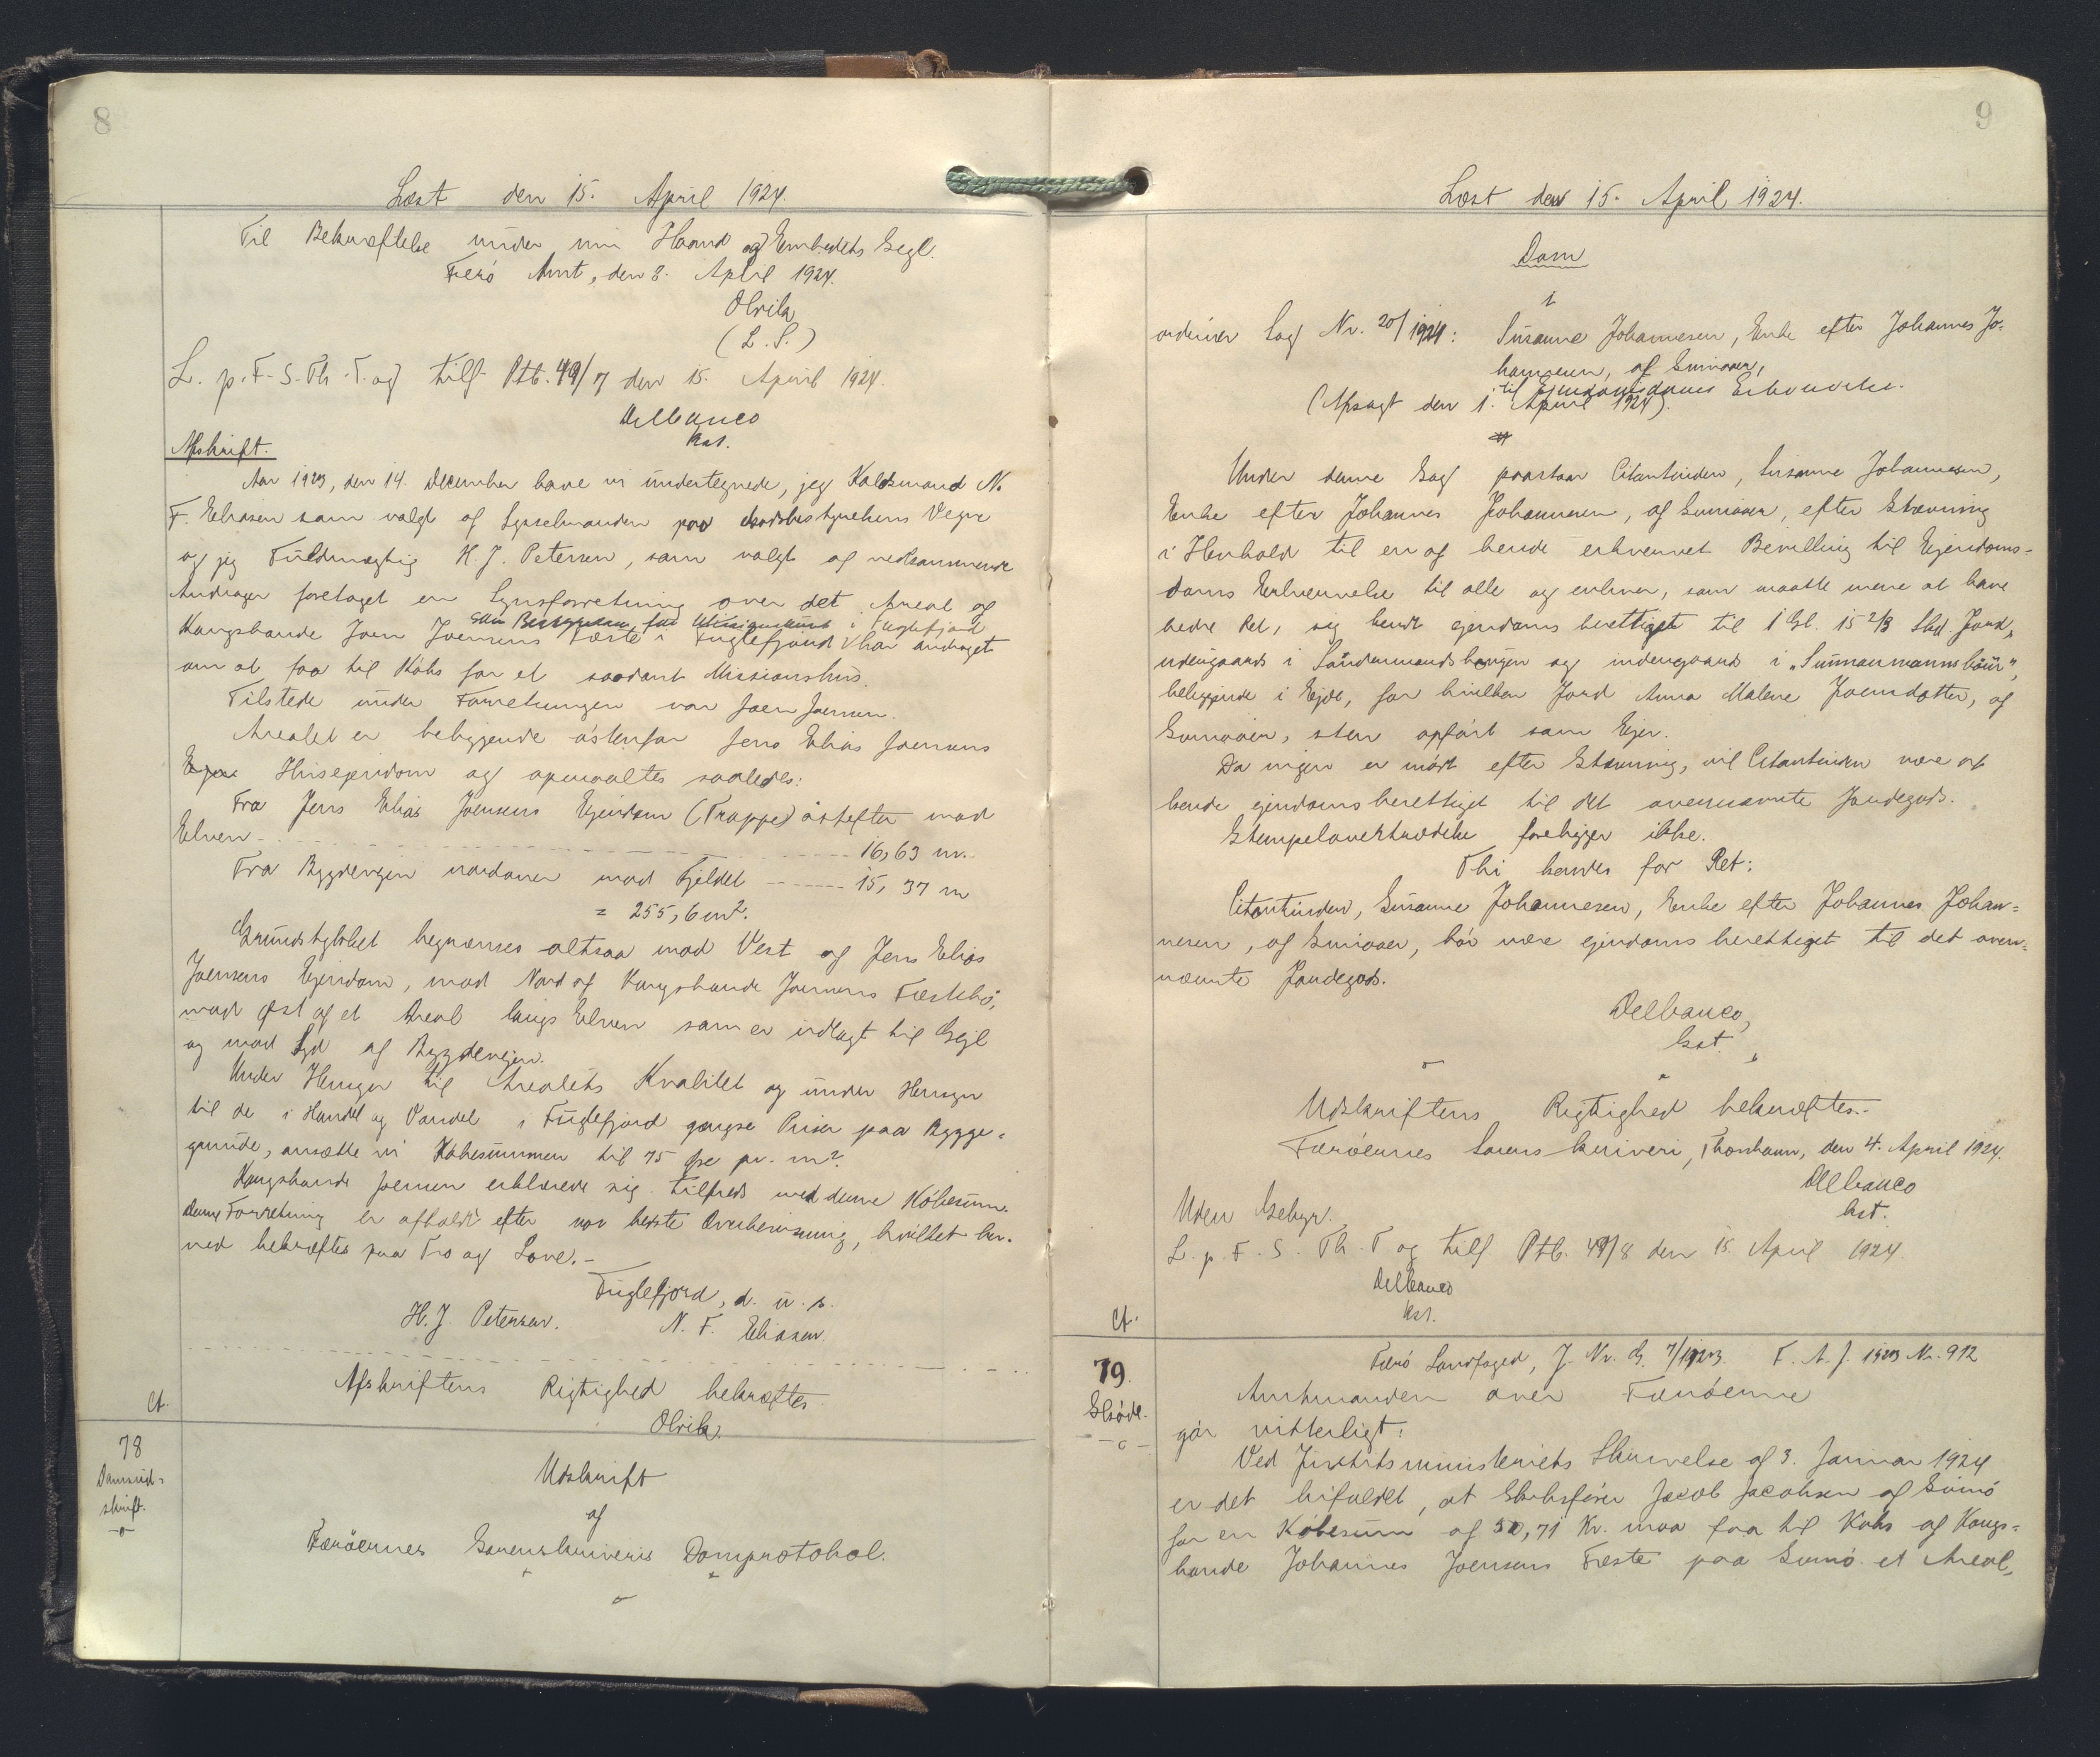 8
Læst den 15. April 1924.
Til Bekræftelse under min Haand og Embedets Segl.
Færö Amt, den 8. April 1924.
Olrik
(L. S.)
L. p. F- S- Th - T. og tilf Ptb. 49/7 den 15. April 1924.
Delbanco
kst.
Afskrift.
Aar 1923, den 14. December have vi undertegnede, jeg Kaldsmand N.
F. Eliasen som valgt af Sysselmanden paa Jordbestyrelsens Vegne
og jeg Fuldmægtig H. J. Petersen, som valgt af vedkommende
Andrager foretaget en Synsforretning over det Areal af
Kongsbonde Joen Joensens Fæste i Fuglefjord som Bestyrelsen for Missionshuset i Fuglefjord har andraget
om at faa til Købs for et saadant Missionshus.
Tilstede under Forretningen var Joen Joensen.
Arealet er beliggende østenfor Jens Elias Joensens
Husejendom og opmaaltes saaledes:
Fra Jens Elias Joensens Ejendom (Trappe) östefter mod
Elven - 16,63 m.
Fra Bygdevejen nordover mod Fjeldet - 15,37 m
= 255,6 m².
Grundstykket begrænses altsaa mod Vest af Jens Elias
Joensens Ejendom, mod Nord af Kongsbonde Joensens Fæstebö,
mod Øst af et Areal langs Elven som er udlagt til Gejl
og mod Syd af Bygdevejen.
Under Hensyn til Arealets Kvalitet og under Hensyn
til de i Handel og Vandel i Fuglefjord gængse Priser paa Bygge=
grunde, ansætte vi Købesummen til 75 Øre pr. m².
Kongsbonde Joensen erklærede sig tilfreds med denne Købesum.
Denne Forretning er afholdt efter vor bedste Overbevisning, hvilket her-
ved bekræftes paa Tro og Love. -
Fuglefjord, d. u. s.
H. J. Petersen. N. F. Eliasen.
Afskriftens Rigtighed bekræftes
Olrik.
Ct.
78
Domsud=
skrift.
Udskrift
af
Færöernes Sorenskriveris Domprotokol.
9
Læst den 15. April 1924.
Dom
i
ordinær Sag Nr. 20/1924: Susanne Johannesen, Enke efter Johannes Jo-
hannesen, af Sumböer,
til Ejendomsdoms Erhvervelse.
(Afsagt den 1. April 1924).
Under denne Sag paastaar Citantinden, Susanne Johannesen,
Enke efter Johannes Johannesen, af efter Stævning
i Henhold til en af hende erhvervet Bevilling til Ejendoms-
doms Erhvervelse til alle og enhver, som maatte mene at have
bedre Ret, sig kendt ejendomsberettiget til 1 Gl. 15 2/3 Skd. Jord,
udengaards i og indengaards i
beliggende i Ejde, for hvilken Jord Anna Malene Joensdatter, af
staar opfört som Ejer.
Da ingen er mødt efter Stævning, vil Citantinden være at
kende ejendomsberettiget til det ovennævnte Jordegods.
Stempelovertrædelse foreligger ikke.
Thi kendes for Ret:
Citantinden, Susanne Johannesen, Enke efter Johannes Johan=
nesen, af bör være ejendomsberettiget til det oven=
nævnte Jordegods.
Delbanco,
kst.
Udskriftens Rigtighed bekræftes. -
Færöernes Sorenskriveri, Thorshavn, den 4. April 1924.
Delbanco
kst.
Uden Gebyr.
L. p. F. S. Th. T og tilf Ptb. 49/8 den 15. April 1924.
Delbanco
kst.
Ct.
79.
Sköde.
Færö Landfoged, J. Nr. G. 7/1923. F. A. J. 1923 Nr. 912
Amtmanden over Færöerne
gör vitterligt:
Ved Justitsministeriets Skrivelse af 3. Januar 1924
er det bifaldet, at Skibsfører Jacob Jacobsen af Svinö
for en Købesum af 50,71 Kr. maa faa til Købs af Kongs=
bonde Johannes Joensens Fæste paa Svinö et Areal,